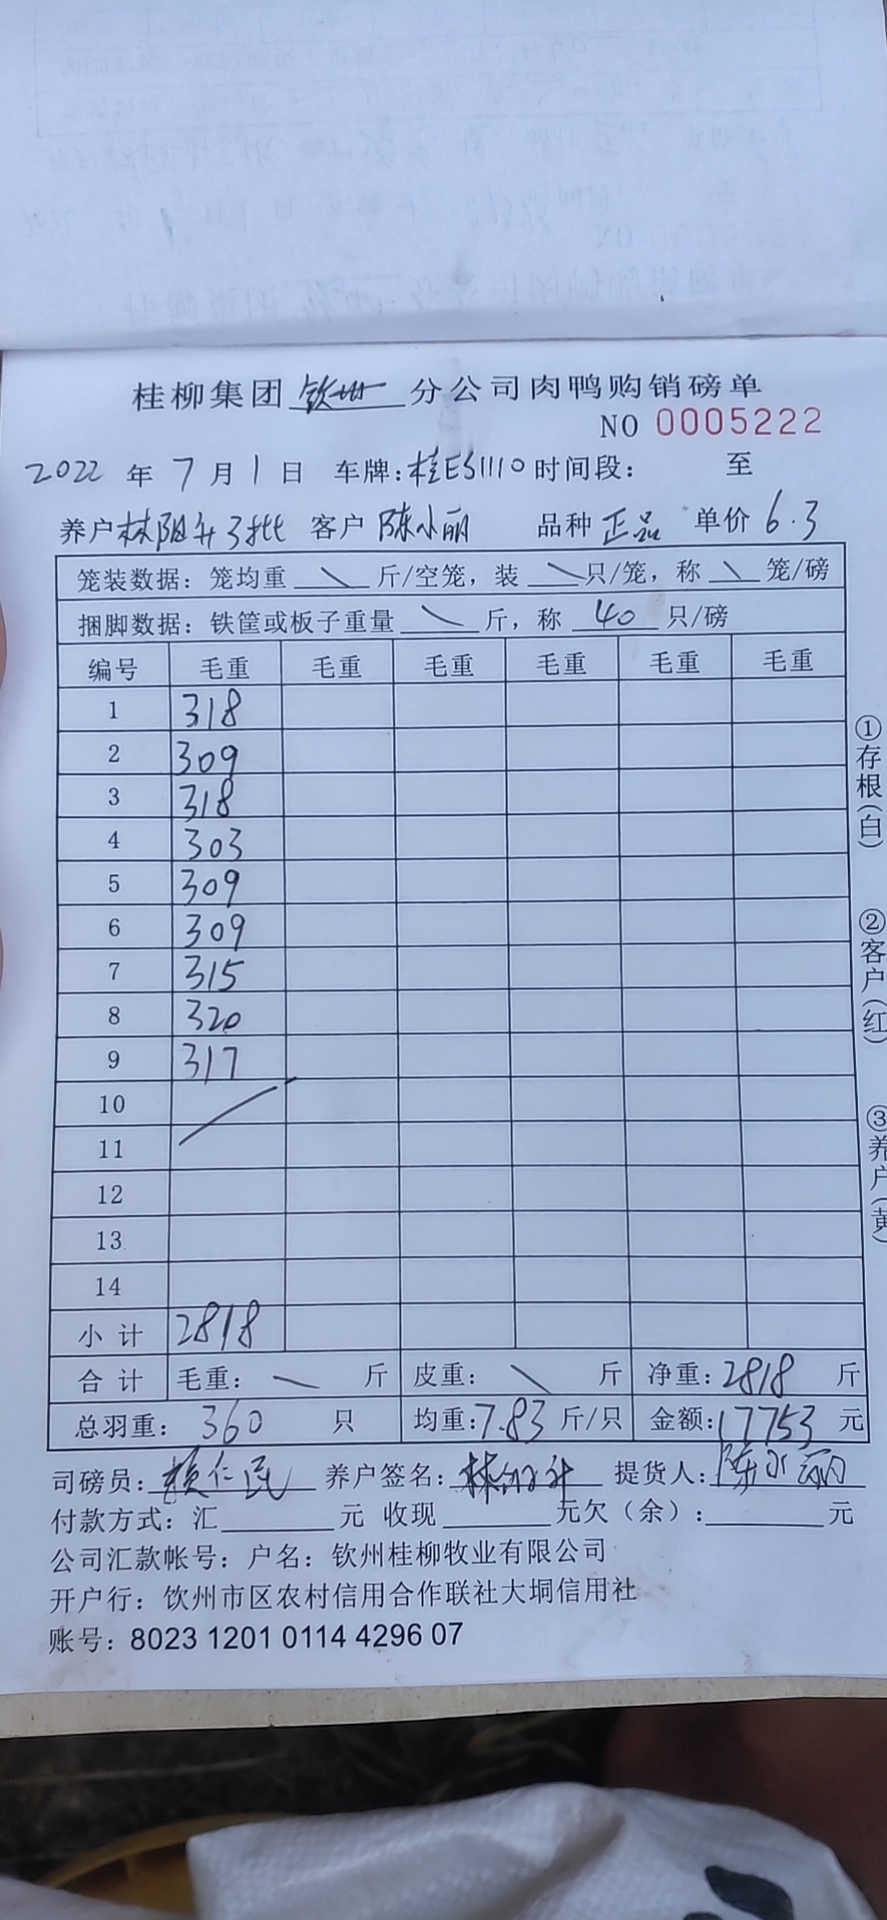 桂柳集团 钦州 分公司肉鸭购销磅单
NO 0005222
2022 年 7 月 1 日 车牌:桂ES1110 时间段: 至
养户 林阳升3批 客户 陈小丽 品种 正品 单价 6.3
笼装数据: 笼均重 \ 斤/空笼, 装 \ 只/笼, 称 \ 笼/磅
捆脚数据: 铁筐或板子重量 \ 斤, 称 40 只/磅
编号 毛重 毛重 毛重 毛重 毛重 毛重
1 318
2 309
3 318
4 303
5 309
6 309
7 315
8 320
9 317
10
11
12
13
14
小计 2818
合计 毛重: \ 斤 皮重: \ 斤 净重: 2818 斤
总羽重: 360 只 均重: 7.83 斤/只 金额: 17753 元
司磅员: 赖仁民 养户签名: 林阳升 提货人: 陈小丽
付款方式: 汇 元 收现 元欠(余): 元
公司汇款帐号: 户名: 钦州桂柳牧业有限公司
开户行: 饮州市区农村信用合作联社大垌信用社
账号: 8023 1201 0114 4296 07
①存根(白)
②客户(红)
③养户(黄)